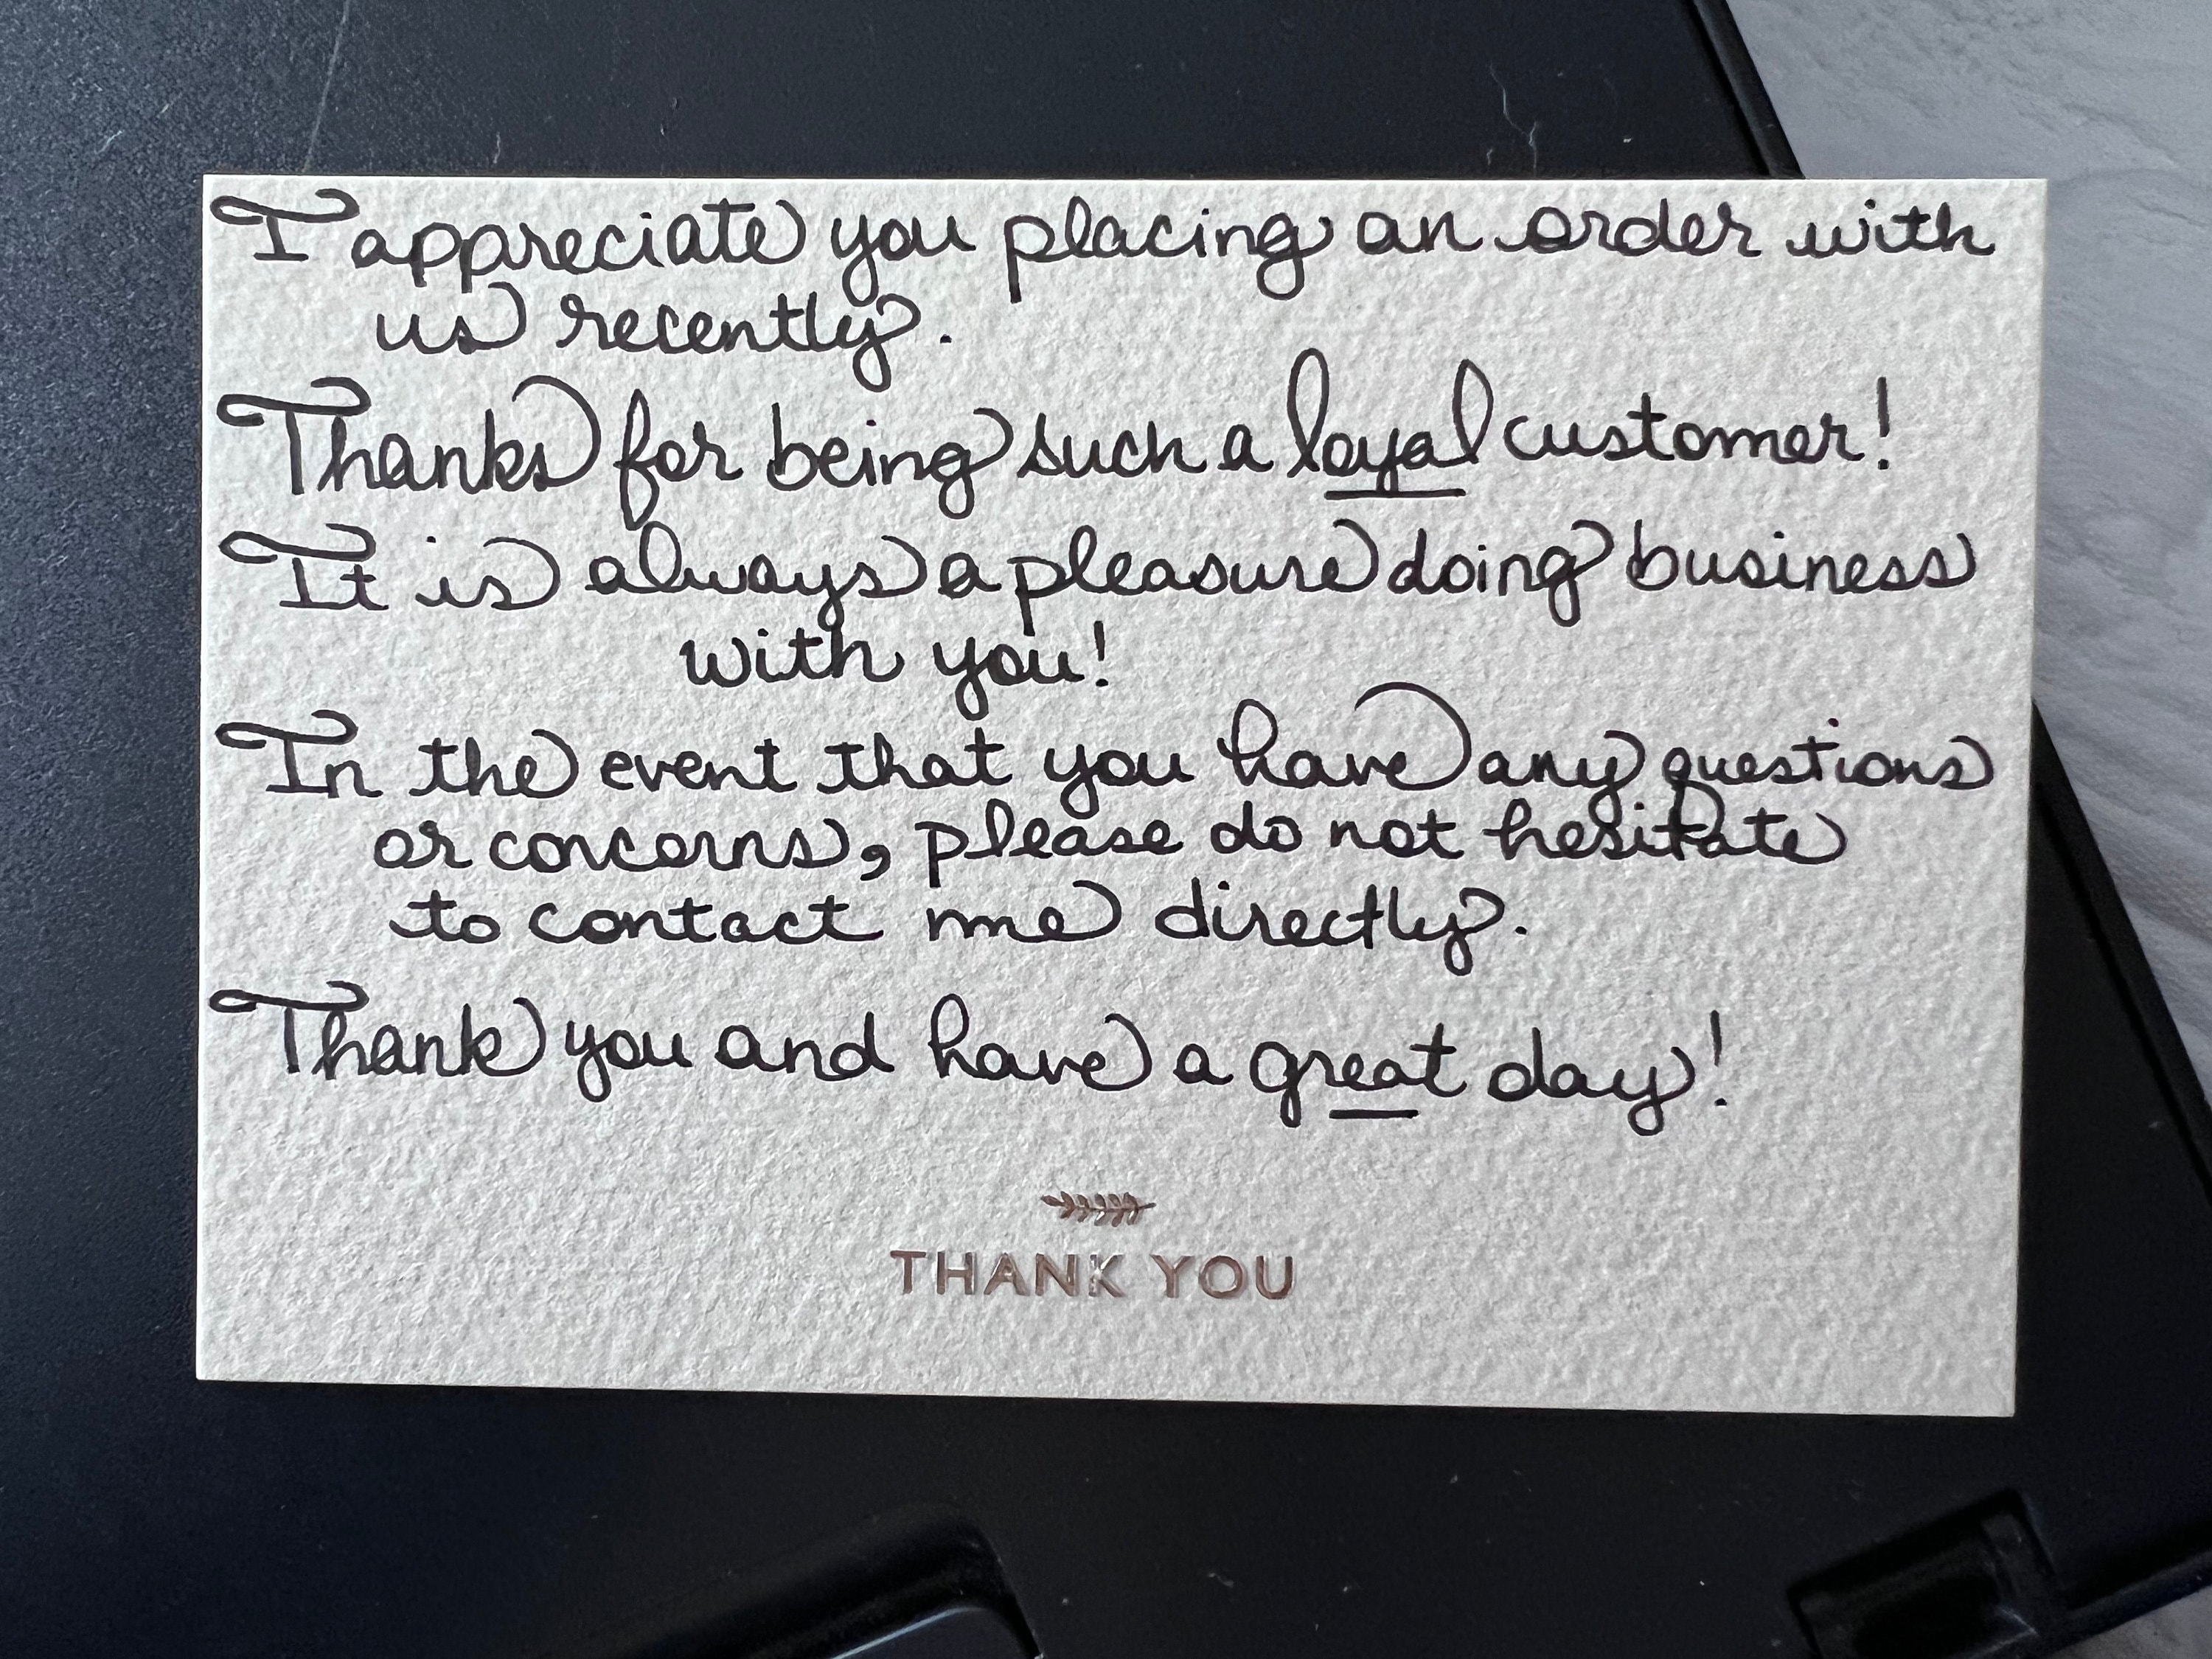 I appreciate you placing an order with
us recently.
Thanks for being such a loyal customer!
It is always a pleasure doing business
with you!
In the event that you have any questions
or concerns, please do not hesitate
to contact me directly.
Thank you and have a great day!
THANK YOU